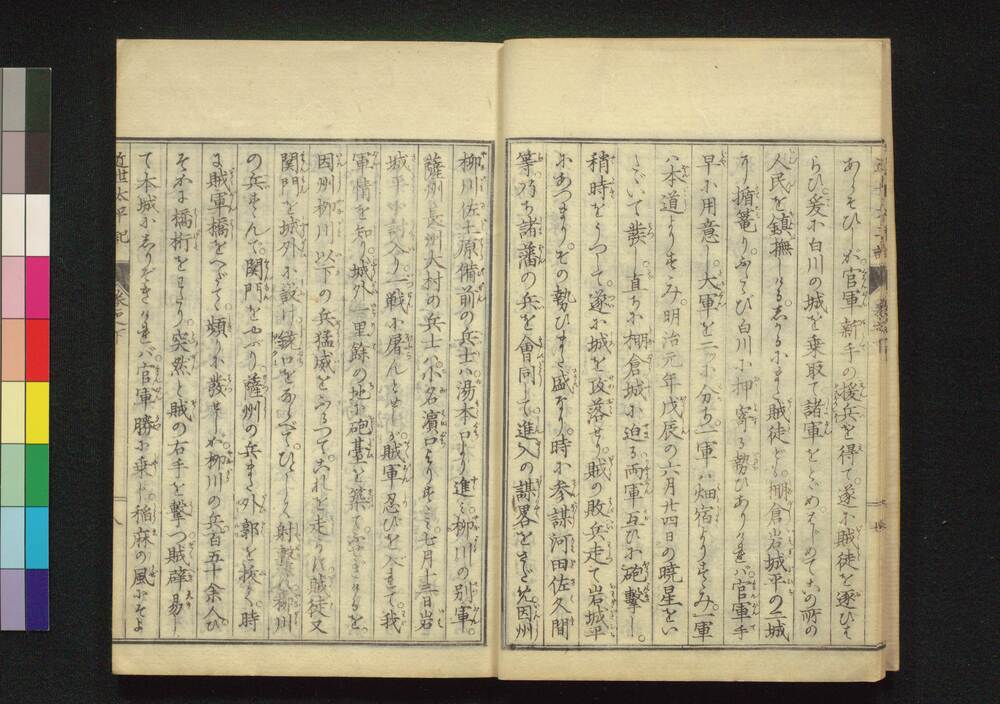 あらそひしが官軍新手の援兵を得て遂に賊徒を逐ひは
らひ爰に白川の城を乗取て諸軍をとゞめはじめて此所の
人民を鎮撫しけるしかるにまた賊徒ども棚倉岩城平の二城
に楯篭りふたゝび白川に押寄る勢ひありければ官軍手
早に用意し大軍を二ツに分ち一軍は畑宿よりすゝみ一軍
は本道よりすゝみ明治元年戊辰の六月廿四日の暁星をい
たゞいて発し直ちに棚倉城に迫る両軍互ひに砲撃し
稍時をうつして遂に城を攻落せり賊の敗兵走て岩城平
にあつまり其勢ひまた盛なり時に参謀河田佐久間
等乃ち諸藩の兵を會同して進入の謀畧をさだめ因州
柳川佐土原備前の兵士は湯本口より進み柳川の別軍
薩州長州大村の兵士は小名濱口よりすゝみ七月十三日岩
城平に討入り一戦に屠んとせしが賊軍忍びを入れて我
軍情を知り城外一里餘の地に砲臺を築てふせぎけるを
因州柳川以下の兵猛威をふるつてこれを走らす賊徒又
関門を城外に設け銃口をならべてひとしく射撃す柳川
の兵すゝんで関門をやぶり薩州の兵また外郭を抜く時
に賊軍橋をへだてゝ頻りに發せしが柳川の兵百五十余人ひ
そかに橋桁をわたり突然と賊の右手を撃つ賊辟易し
て本城にしりぞきければ官軍勝に乗じ稲麻の風にそよ
近世太平記
八